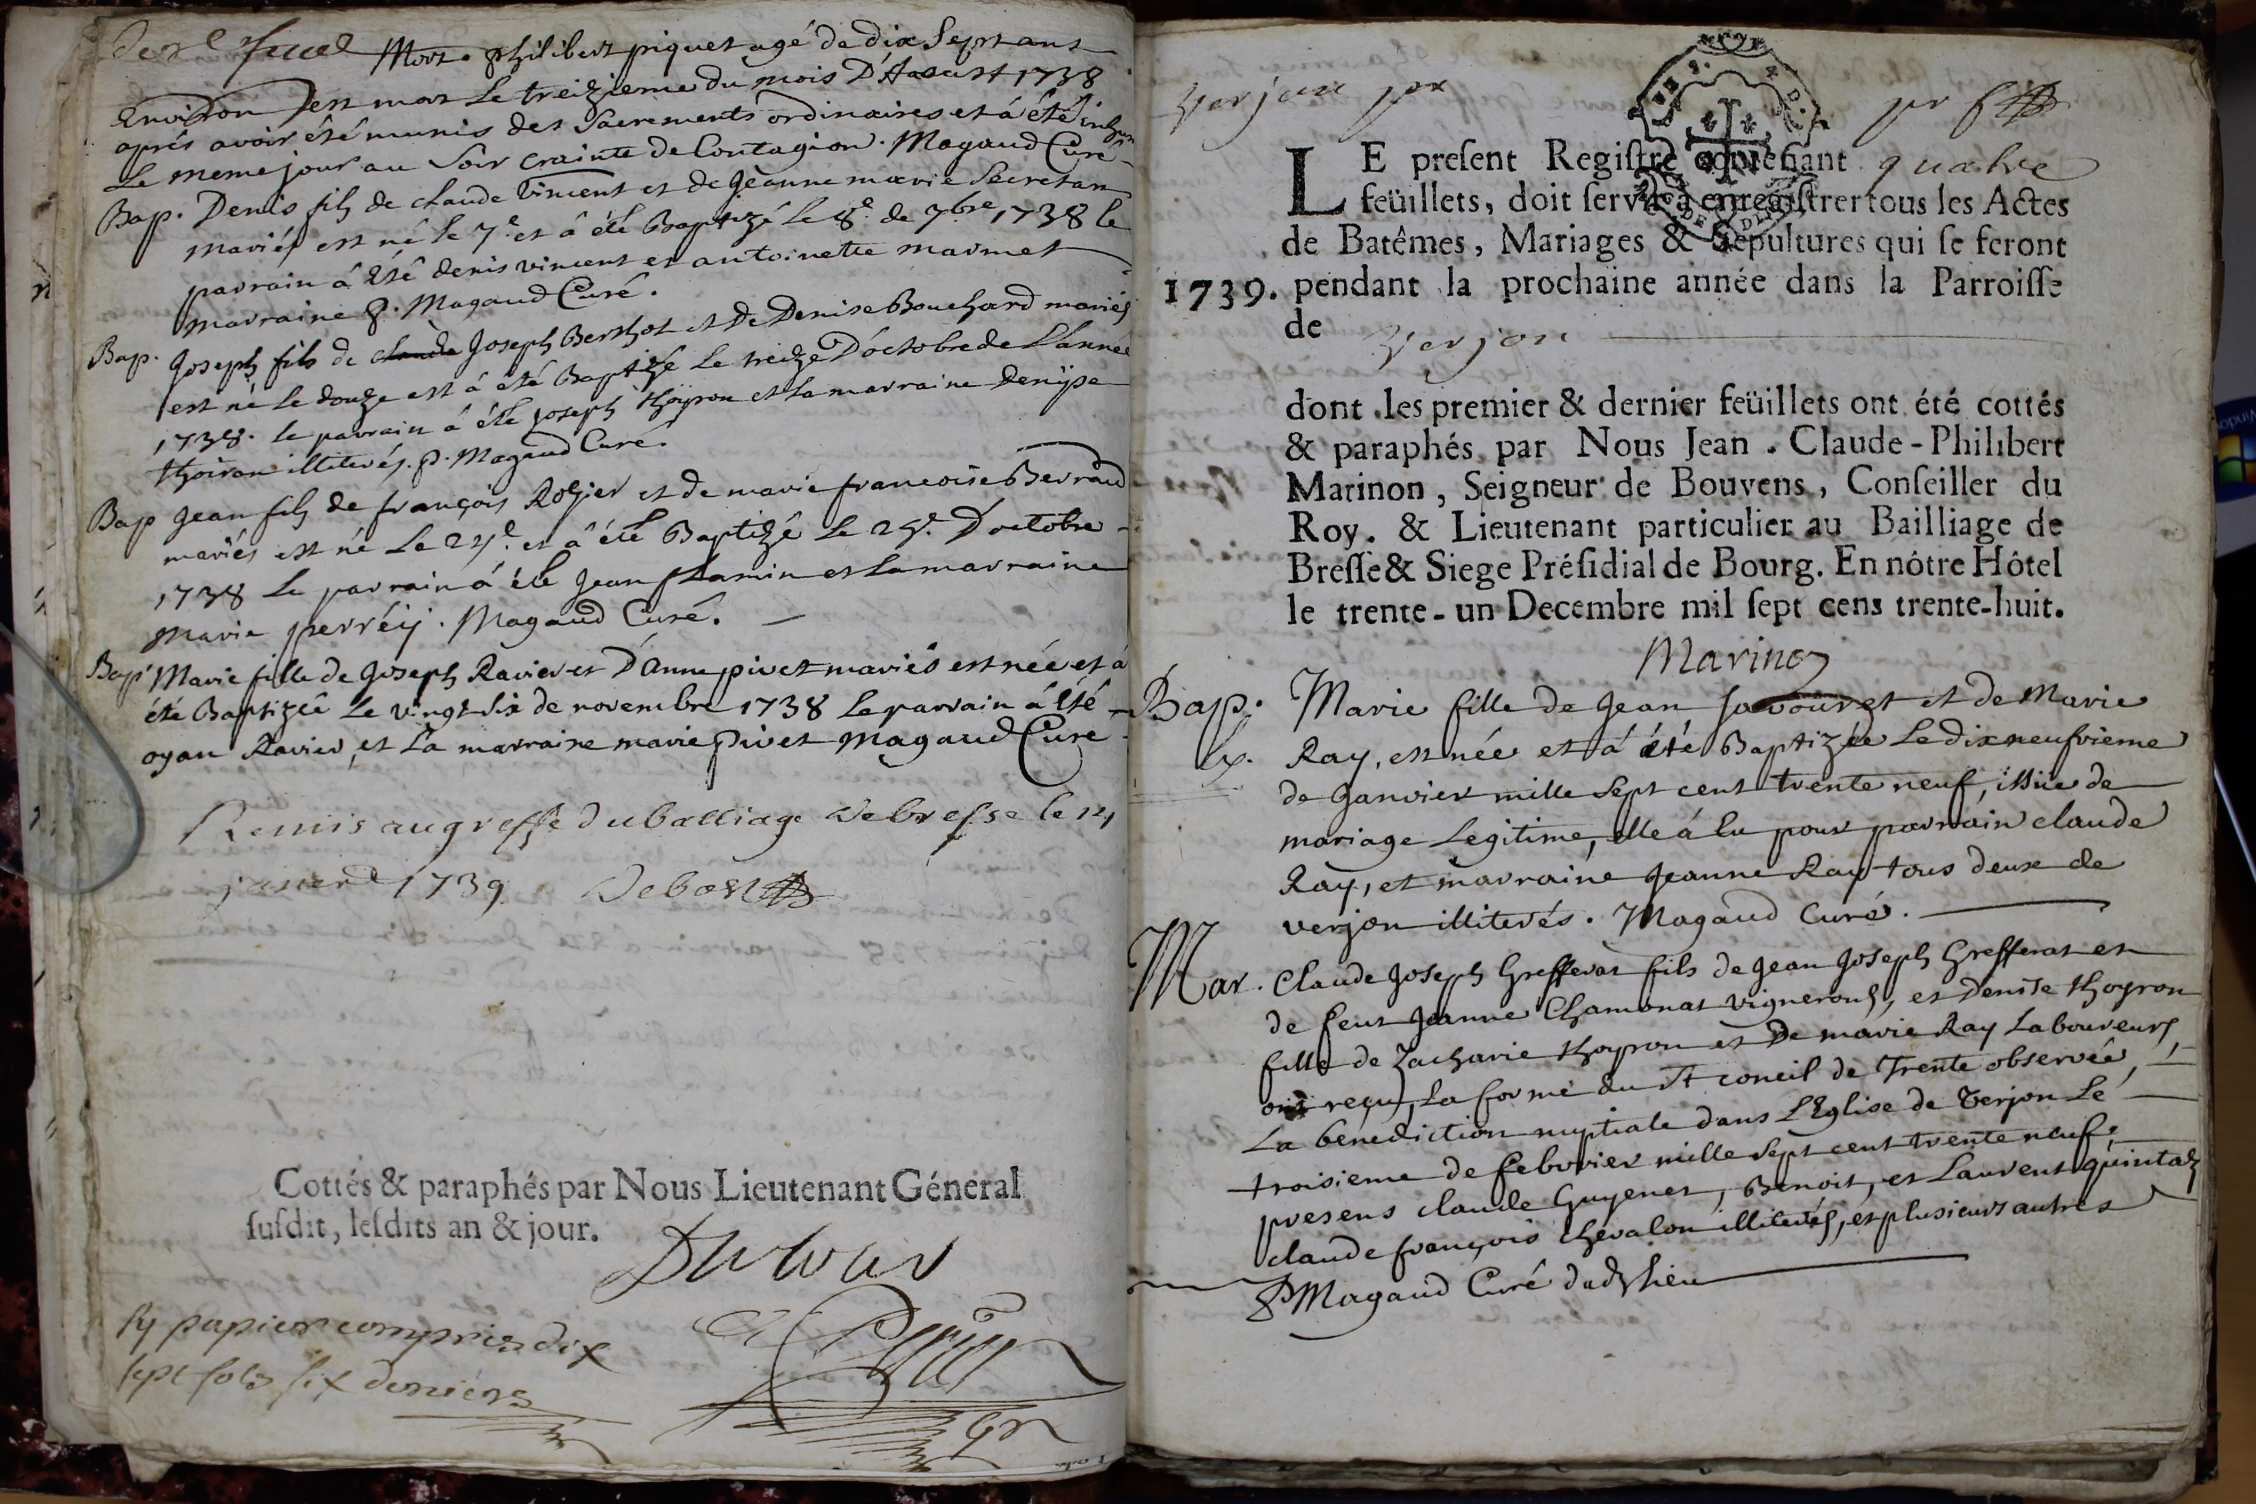 Mort. philibert piquet agé de dix Sept ans
Environ est mort Le treizieme du mois D'Aoust 1738
aprés avoir été munis des Sacrements ordinaires et á été inhumé
Le meme jour au Soir crainte de Contagion. Magaud Curé
Bap. Denis fils de claude Vincent et de jeanne marie Secretan
mariés est né le 7e. et á été Baptizé le 8e. de 7bre 1738 le
parrain á Eté denis vincent et antoinette marmet
marraine P. Magaud Curé.
Bap. Joseph fils de claude Joseph Berthot et De Denise Bouchard mariés
est né le douze et á eté Baptizé Le treize D'octobre de L'année
1738. le parrain á été joseph thoyron et La marraine Denyse
thoiron illiterés. P. Magaud Curé.
Bap Jean fils de françois Rozier et de marie francoise Berraud
mariés est né Le et á été Baptizé Le 25e. D'octobre
1738 Le parrain á été jean flamin et La marraine
Marie perréy. Magaud Curé.
Bap Marie fille de Joseph Ravier et D'Anne pivet mariés est née et á
été Baptizée Le vingt six de novembre 1738 Le parrain á Eté
oyan Ravier, et La marraine marie pivet Magaud Curé
Remis au greffe du balliage de bresse le 14
janvier 1739
Cottés & paraphés par Nous Lieutenant Géneral
susdit, lesdits an & jour.
papier compris dix
sept sols six deniers
verjon
LE present Registre contenant quatre
feüillets, doit servir à enregistrer tous les Actes
de Batêmes, Mariages & Sepultures qui se feront
1739. pendant la prochaine année dans la Parroisse
de Verjon
dont les premier & dernier feüillets ont été cottés
& paraphés par Nous Jean-Claude-Philibert
Marinon, Seigneur de Bouvens, Conseiller du
Roy. & Lieutenant particulier au Bailliage de
Bresse & Siege Présidial de Bourg. En nôtre Hôtel
le trente-un Decembre mil sept cens trente-huit.
Marinon
Bap. Marie fille de Jean Savouret et de Marie
Ray, est née et á été Baptizée Le dixneufvieme
de Janvier mille sept cent trente neuf, issüe de
mariage Legitime, elle á Eu pour parrain claude
Ray, et marraine jeanne Ray tous deux de
verjon illiterés. Magaud Curé.
Mar. Claude Joseph Grefferat fils de Jean Joseph Grefferat et
de feue Jeanne Chamonat vignerons, et Denise thoyron
fille de Zacharie thoyron et De marie Ray Laboureurs,
ont reçu, La forme du St concil de Trente observée,
La bénédiction nuptiale dans L'Eglise de Verjon Le
troisieme de febvrier mille sept cent trente neuf,
presens claude Guyenet, Benoit, et Laurent quintal,
claude françois chevalon illiterés, et plusieurs autres
P Magaud Curé dud. Lieu